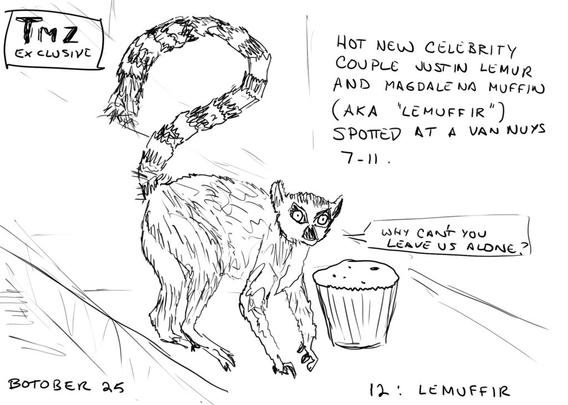 TMZ
EXCLUSIVE
HOT NEW CELEBRITY
COUPLE JUSTIN LEMUR
AND MAGDALENA MUFFIN
(AKA "LEMUFFIR")
SPOTTED AT A VAN NUYS
7-11.
WHY CAN'T YOU
LEAVE US ALONE?
BOTOBER 25
12: LEMUFFIR